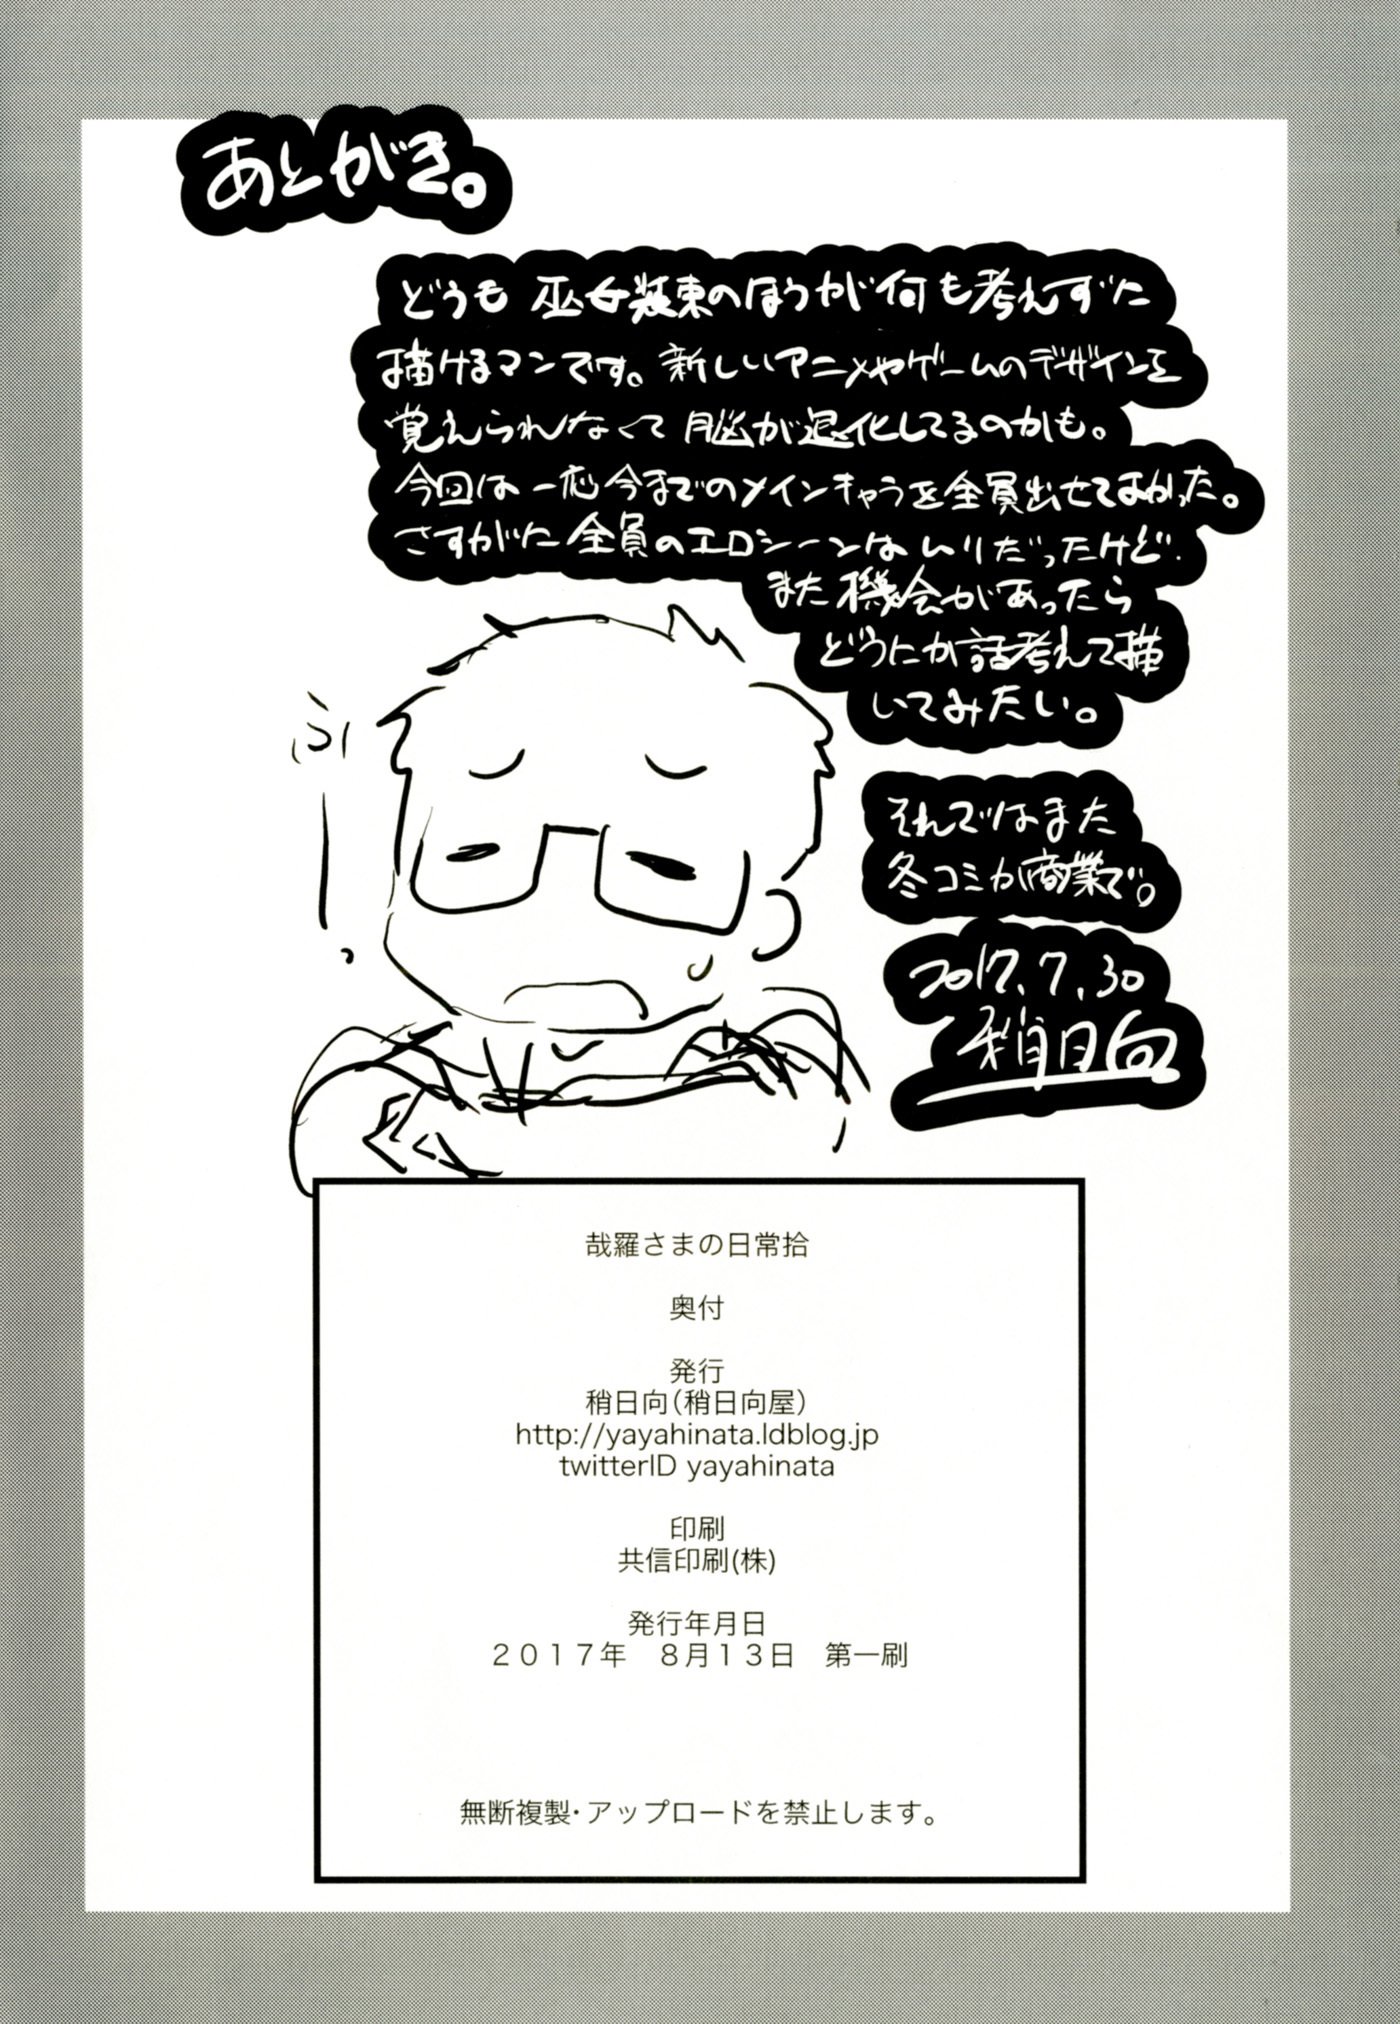 あとがき。
どうも 巫女装束のほうが何も考えずに
描けるマンです。新しいアニメやゲームのデザインを
覚えられなくて 脳が退化してるのかも。
今回は一応今までのメインキャラを全員出せてよかった。
さすがに全員のエロシーンはムリだったけど
また機会があったら
どうにか話考えて描
いてみたい。
ふぅ
それではまた
冬コミか商業で。
2017.7.30
稍日向
哉羅さまの日常拾
奥付
発行
稍日向(稍日向屋)
http://yayahinata.ldblog.jp
twitterID yayahinata
印刷
共信印刷(株)
発行年月日
2017年 8月13日 第一刷
無断複製・アップロードを禁止します。